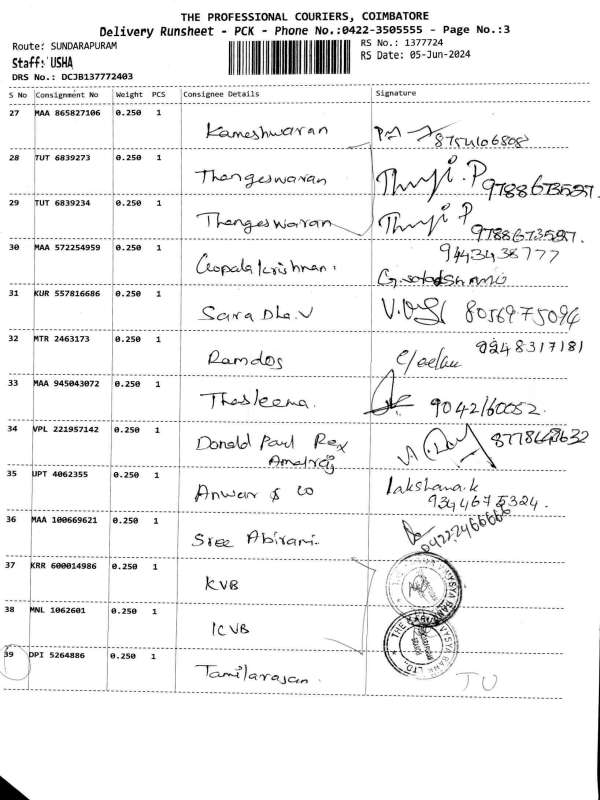 THE PROFESSIONAL COURIERS, COIMBATORE
Delivery Runsheet - PCK - Phone No.:0422-3505555 - Page No.:3
Route: SUNDARAPURAM
RS No.: 1377724
Staff: USHA
RS Date: 05-Jun-2024
DRS No.: DCJB137772403
S No Consignment No Weight PCS Consignee Details Signature
27 MAA 865827106 0.250 1
Kameshwaran
28 TUT 6839273 0.250 1
Thangeswaran 9788673597
29 TUT 6839234 0.250 1
Thangeswaran 9788673597.
30 MAA 572254959 0.250 1 9443438777
Gopalakrishnan.
31 KUR 557816686 0.250 1
Saradha.V 8056975094
32 MTR 2463173 0.250 1 9248317181
Ramdos
33 MAA 945043072 0.250 1
Thasleema. 9042160052.
34 VPL 221957142 0.250 1
Donald Paul Rex
Amalraj
35 UPT 4062355 0.250 1 lakshana.k
Anwar & Co 9344675324.
36 MAA 100669621 0.250 1 04222466666
Sree Abirami.
37 KRR 600014986 0.250 1
KVB
38 MNL 1062601 0.250 1
KVB
THE KARUR VYSYA BANK LTD.
39 DPI 5264886 0.250 1
Tamilarasan.
TU